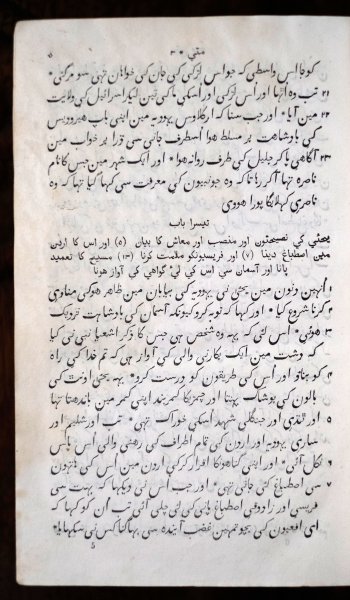 متي * ٣
٥
کو جا اِس واسطی کہ جو اس لڑکی کی جان کی خواہان تہی سو مر گئی *
٢١ تب وہ اُٹہا اور اُس لڑکی اور اُسکی ما کی تئین لیکر اسرائیل کی ولایت
٢٢ مین آیا * اور جب سنا کہ ارکلاوس یہودیہ مین اپنی باپ ہیرودیس
کی بادشاهت پر مسلط هوا اُسطرف جانی سی ڈرا پر خواب مین
٢٣ آگاهی پا کر جلیل کی طرف روانہ هوا * اور ایک شہر مین جس کا نام
ناصرہ تہا آکر رہا تا کہ وہ جو نبیون کی معرفت سی کہا گیا تہا کہ وہ
ناصری کہلائگا پورا هووی
تیسرا باب
یحییٰ کی نصیحتون اور منصب اور معاش کا بیان (٥) اور اس کا اردن
مین اصطباغ دینا (٧) اور فریسیونکو ملامت کرنا (١٣) مسیح کا تعمید
پانا اور آسمان سی اس کی لئی گواهی کی آواز هونا
١ اُنہین دنون مین یحیٰی نی یہودیہ کی بیابان مین ظاهر هوکی منادی
٢ کرنا شروع کیا * اور کہا کہ توبہ کرو کیونکہ آسمان کی بادشاهت نزدیک
٣ هوئی * اس لئی کہ یہہ وہ شخص هی جس کا ذکر اشعیا نبی نی کیا
کہ دشت مین ایک پکارنی والی کی آواز هی کہ تم خدا کی راہ
٤ کو بناؤ اور اُس کی طریقون کو درست کرو * یہہ یحیٰی اونٹ کی
بالون کی پوشاک پہنتا اور چمڑیکا کمربند اپنی کمر مین باندهتا تہا
٥ اور ٹڈی اور جنگلی شہد اُسکی خوراک تہی * تب اورشلیم اور
ساری یہودیہ اور اردن کی تمام اطراف کی رهنی والی اُس پاس
٦ نکل آئی * اور اپنی گناهونکا اقرار کرکی اردن مین اُس کی هاتہون
٧ سی اصطباغ کئی جاتی تہی * اور جب اُس نی دیکہا کہ بہت سی
فریسی اور زادوقی اصطباغ پانی کی لئی چلی آئی تب اُن کو کہا کہ
ای افعیون کی بچو تمہین غضب آیندہ سی بہاگنا کس نی سکہلایا *